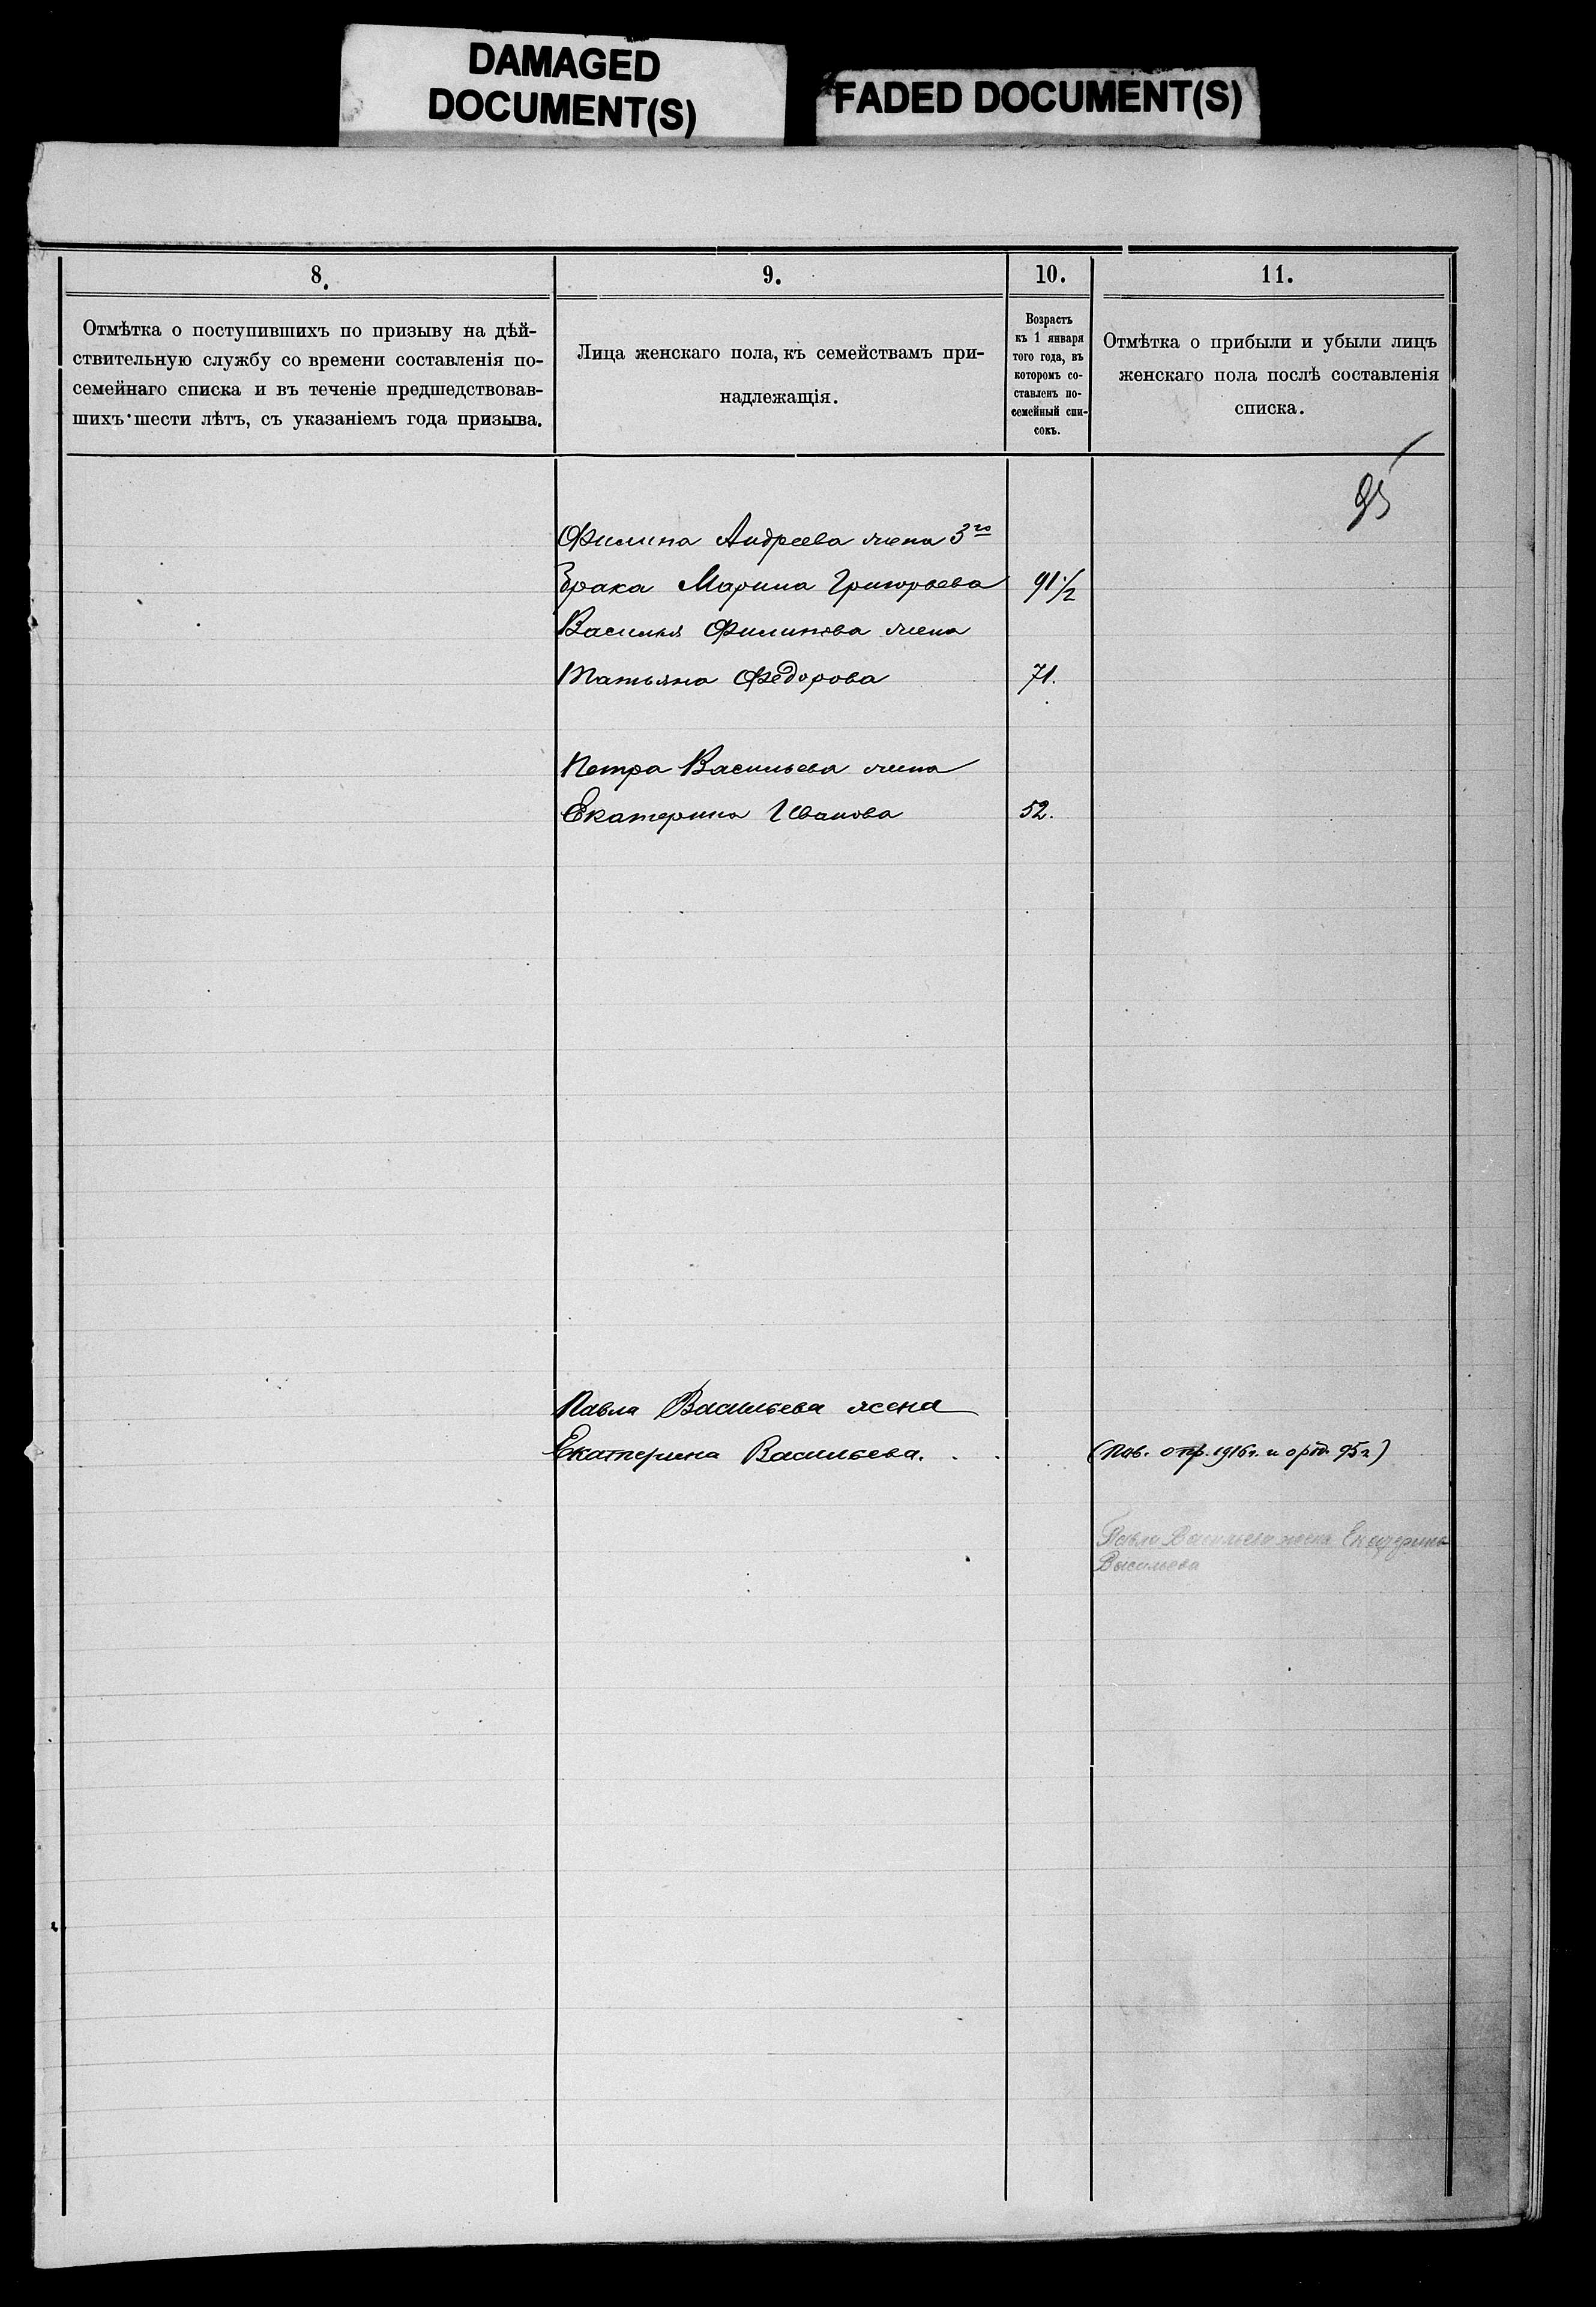 DAMAGED
DOCUMENT(S)
FADED DOCUMENT(S)
8.
Отмѣтка о поступившихъ по призыву на дѣй-
ствительную службу со времени составленія по-
семейнаго списка и въ теченіе предшедствовав-
шихъ шести лѣтъ, съ указаніемъ года призыва.
9.
Лица женскаго пола, къ семействамъ при-
надлежащія.
10.
Возрастъ
къ 1 января
того года, въ
которомъ со-
ставленъ по-
семейный спи-
сокъ.
11.
Отмѣтка о прибыли и убыли лицъ
женскаго пола послѣ составленія
списка.
95
Филипа Андреева жена 3го
брака Марина Григорьева 91 1/2
Василья Филипова жена
Татьяна Федорова 71.
Петра Васильева жена
Екатерина Иванова 52.
Павла Васильева жена
Екатерина Васильева. . . (Пов. отр. 1916 г. и 95 г)
Павла Васильева жена Екатерина
Васильева